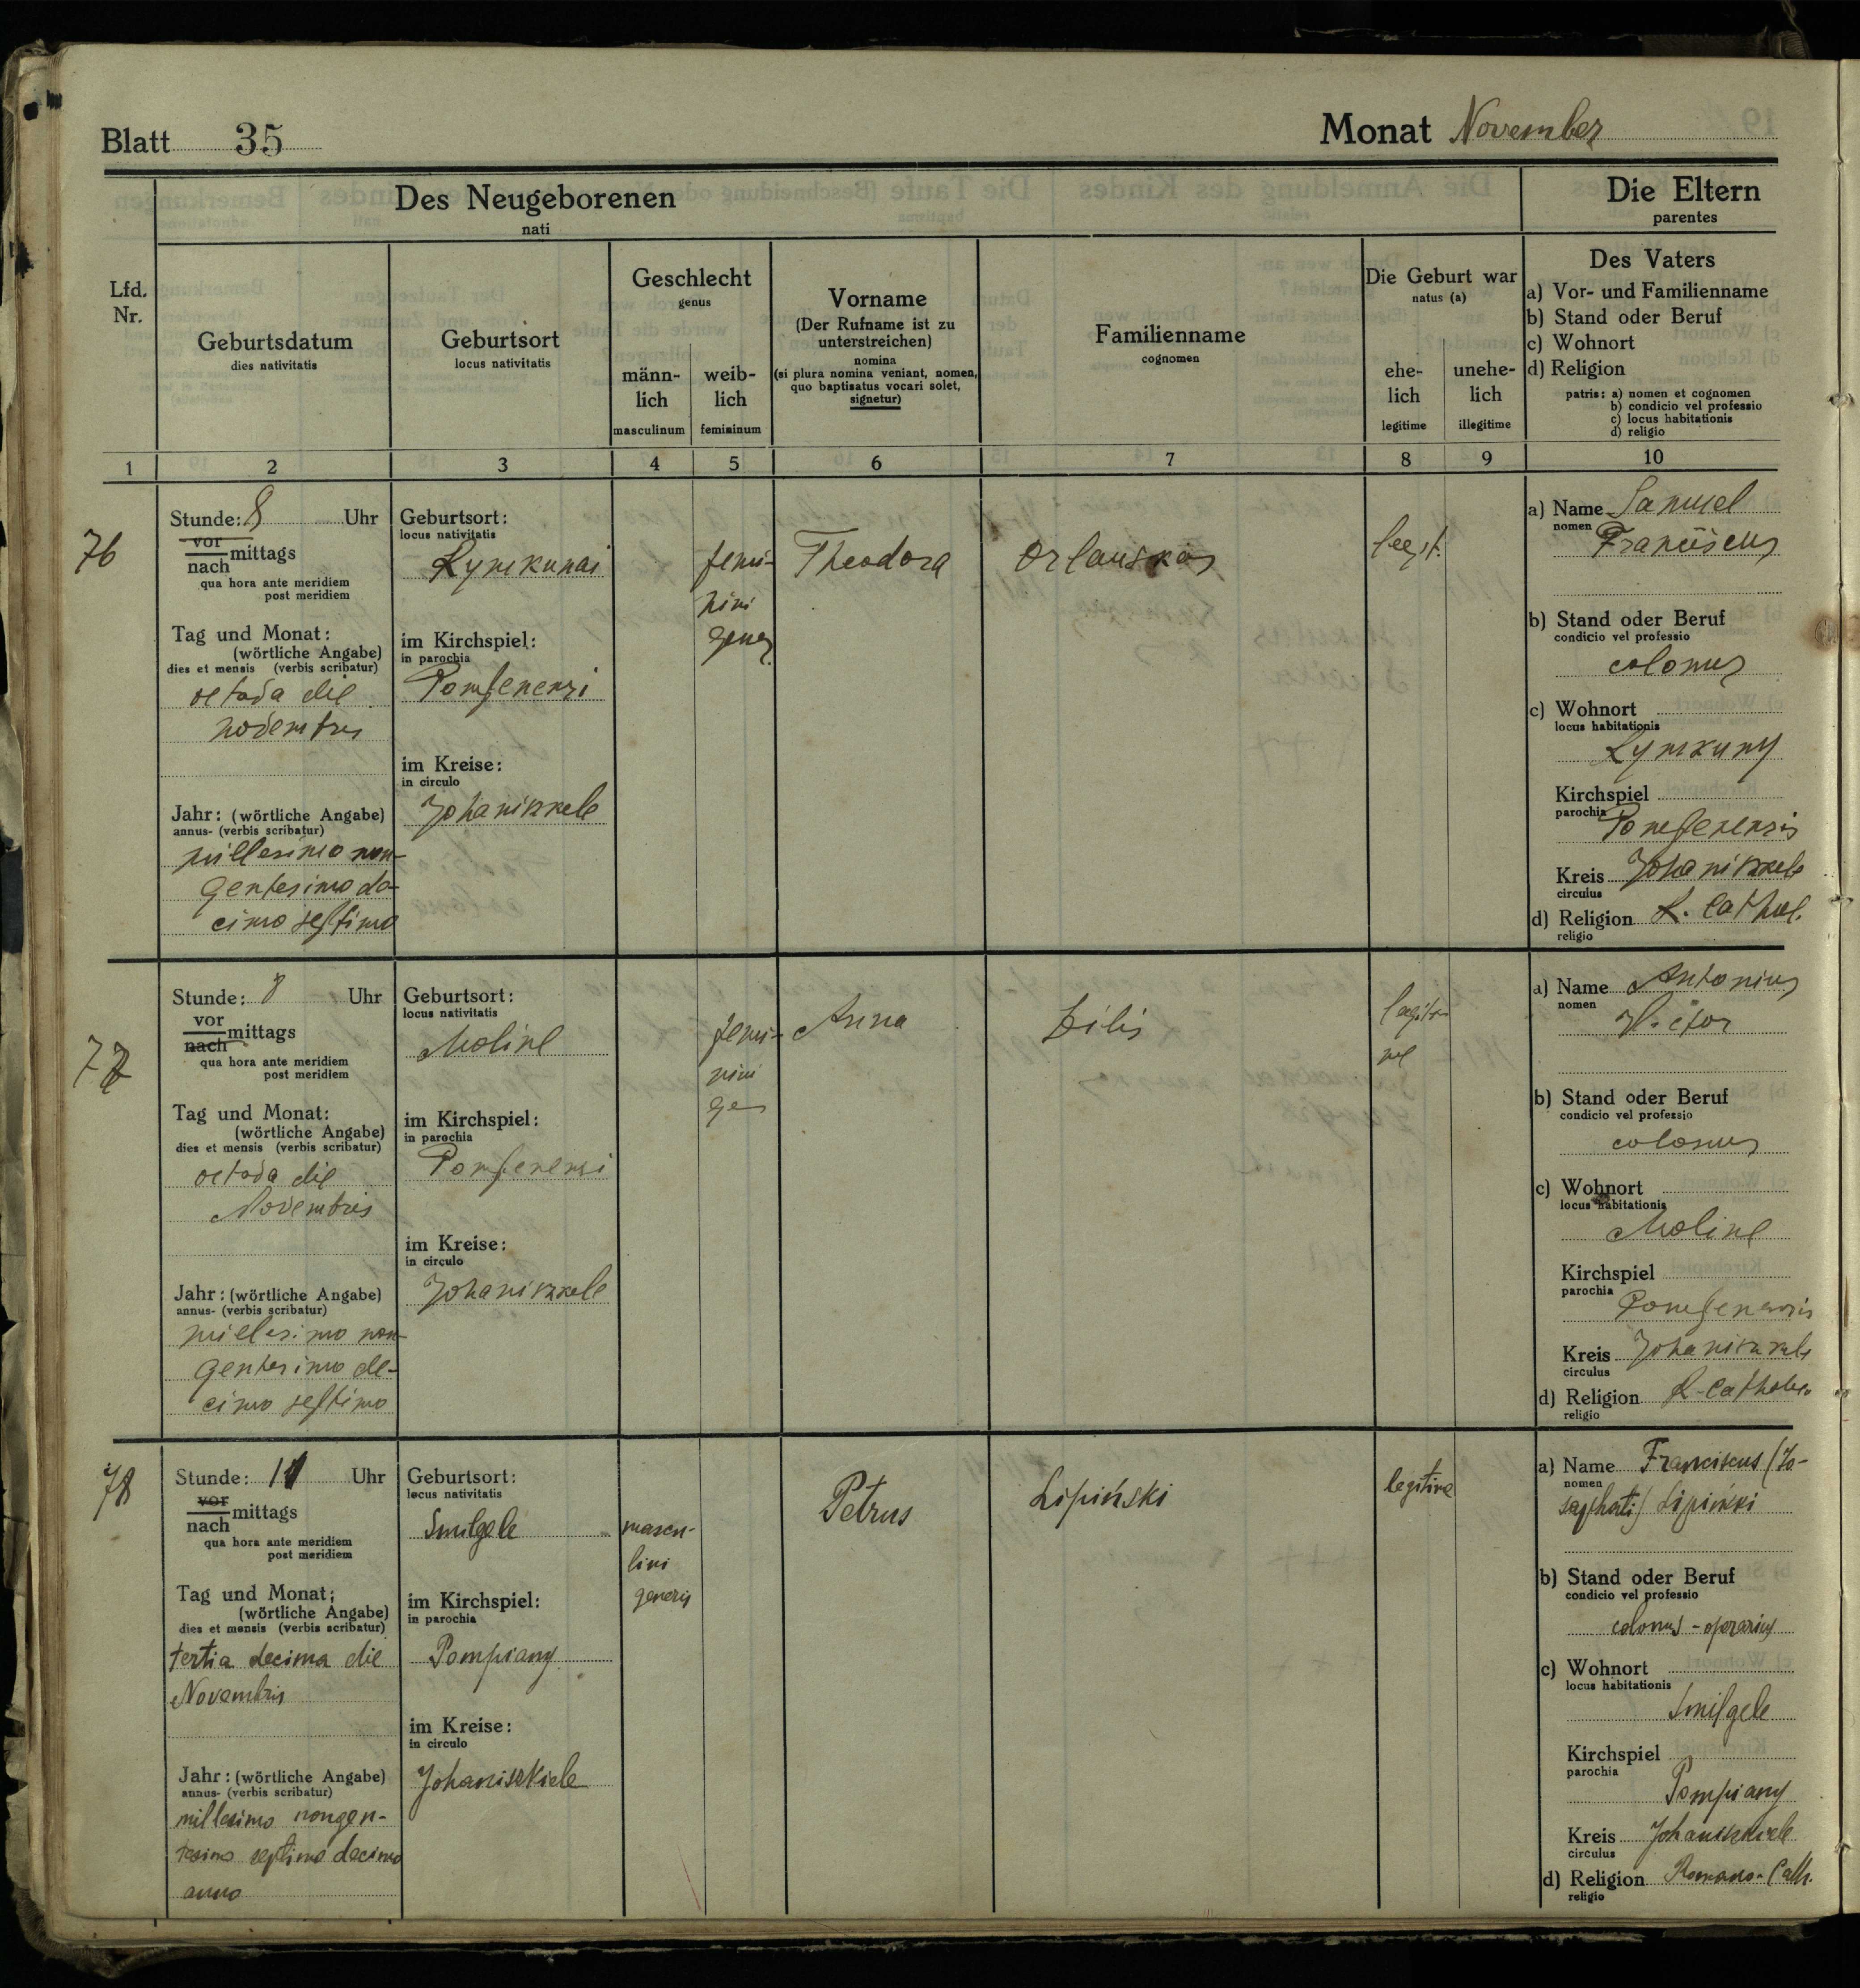 Blatt 35
Monat November
Des Neugeborenen
nati
Die Eltern
parentes
Lfd.
Nr.
Geburtsdatum
dies nativitatis
Geburtsort
locus nativitatis
Geschlecht
genus
männ-
lich
masculinum
weib-
lich
femininum
Vorname
(Der Rufname ist zu
unterstreichen)
nomina
(si plura nomina veniant, nomen,
quo baptisatus vocari solet,
signetur)
Familienname
cognomen
Die Geburt war
natus (a)
ehe-
lich
legitime
unehe-
lich
illegitime
Des Vaters
a) Vor- und Familienname
b) Stand oder Beruf
c) Wohnort
d) Religion
patris: a) nomen et cognomen
b) condicio vel professio
c) locus habitationis
d) religio
1 2 3 4 5 6 7 8 9 10
76
Stunde: 8 Uhr
vor
nach mittags
qua hora ante meridiem
post meridiem
Tag und Monat:
(wörtliche Angabe)
dies et mensis (verbis scribatur)
octava die
novembris
Jahr: (wörtliche Angabe)
annus- (verbis scribatur)
millesimo non-
gentesimo de-
cimo septimo
Geburtsort:
locus nativitatis
Rymkunai
im Kirchspiel:
in parochia
Pompenensi
im Kreise:
in circulo
Johaniszkele
femi-
nini
gener
Theodora
Orlauskas
a) Name Samuel
nomen
Franciscus
b) Stand oder Beruf
condicio vel professio
colonus
c) Wohnort
locus habitationis
Rymkuny
Kirchspiel
parochia
Pompenensis
Kreis Johaniszkele
circulus
d) Religion R. Cathol.
religio
77
Stunde: 8 Uhr
vor
nach mittags
qua hora ante meridiem
post meridiem
Tag und Monat:
(wörtliche Angabe)
dies et mensis (verbis scribatur)
octava die
Novembris
Jahr: (wörtliche Angabe)
annus- (verbis scribatur)
millesimo non-
gentesimo de-
cimo septimo
Geburtsort:
locus nativitatis
Moline
im Kirchspiel:
in parochia
Pompenensi
im Kreise:
in circulo
Johaniszkele
femi-
nini
ge
Anna
legiti
me
a) Name Antonius
nomen
Victor
b) Stand oder Beruf
condicio vel professio
colonus
c) Wohnort
locus habitationis
Moline
Kirchspiel
parochia
Pompenensis
Kreis Johaniszkele
circulus
d) Religion R-Catholic
religio
78
Stunde: Uhr
vor
nach mittags
qua hora ante meridiem
post meridiem
Tag und Monat:
(wörtliche Angabe)
dies et mensis (verbis scribatur)
tertia decima die
Novembris
Jahr: (wörtliche Angabe)
annus- (verbis scribatur)
millesimo nongen-
tesimo septimo decimo
anno
Geburtsort:
locus nativitatis
Smilgele
im Kirchspiel:
in parochia
Pompiany
im Kreise:
in circulo
Johaniszkiele
mascu-
lini
generis
Petrus
Lipiński
legitime
a) Name Franciscus (Jo-
nomen
saphati) Lipiński
b) Stand oder Beruf
condicio vel professio
colonus - operarius
c) Wohnort
locus habitationis
Smilgele
Kirchspiel
parochia
Pompiany
Kreis Johaniszkiele
circulus
d) Religion Romano-Cath.
religio